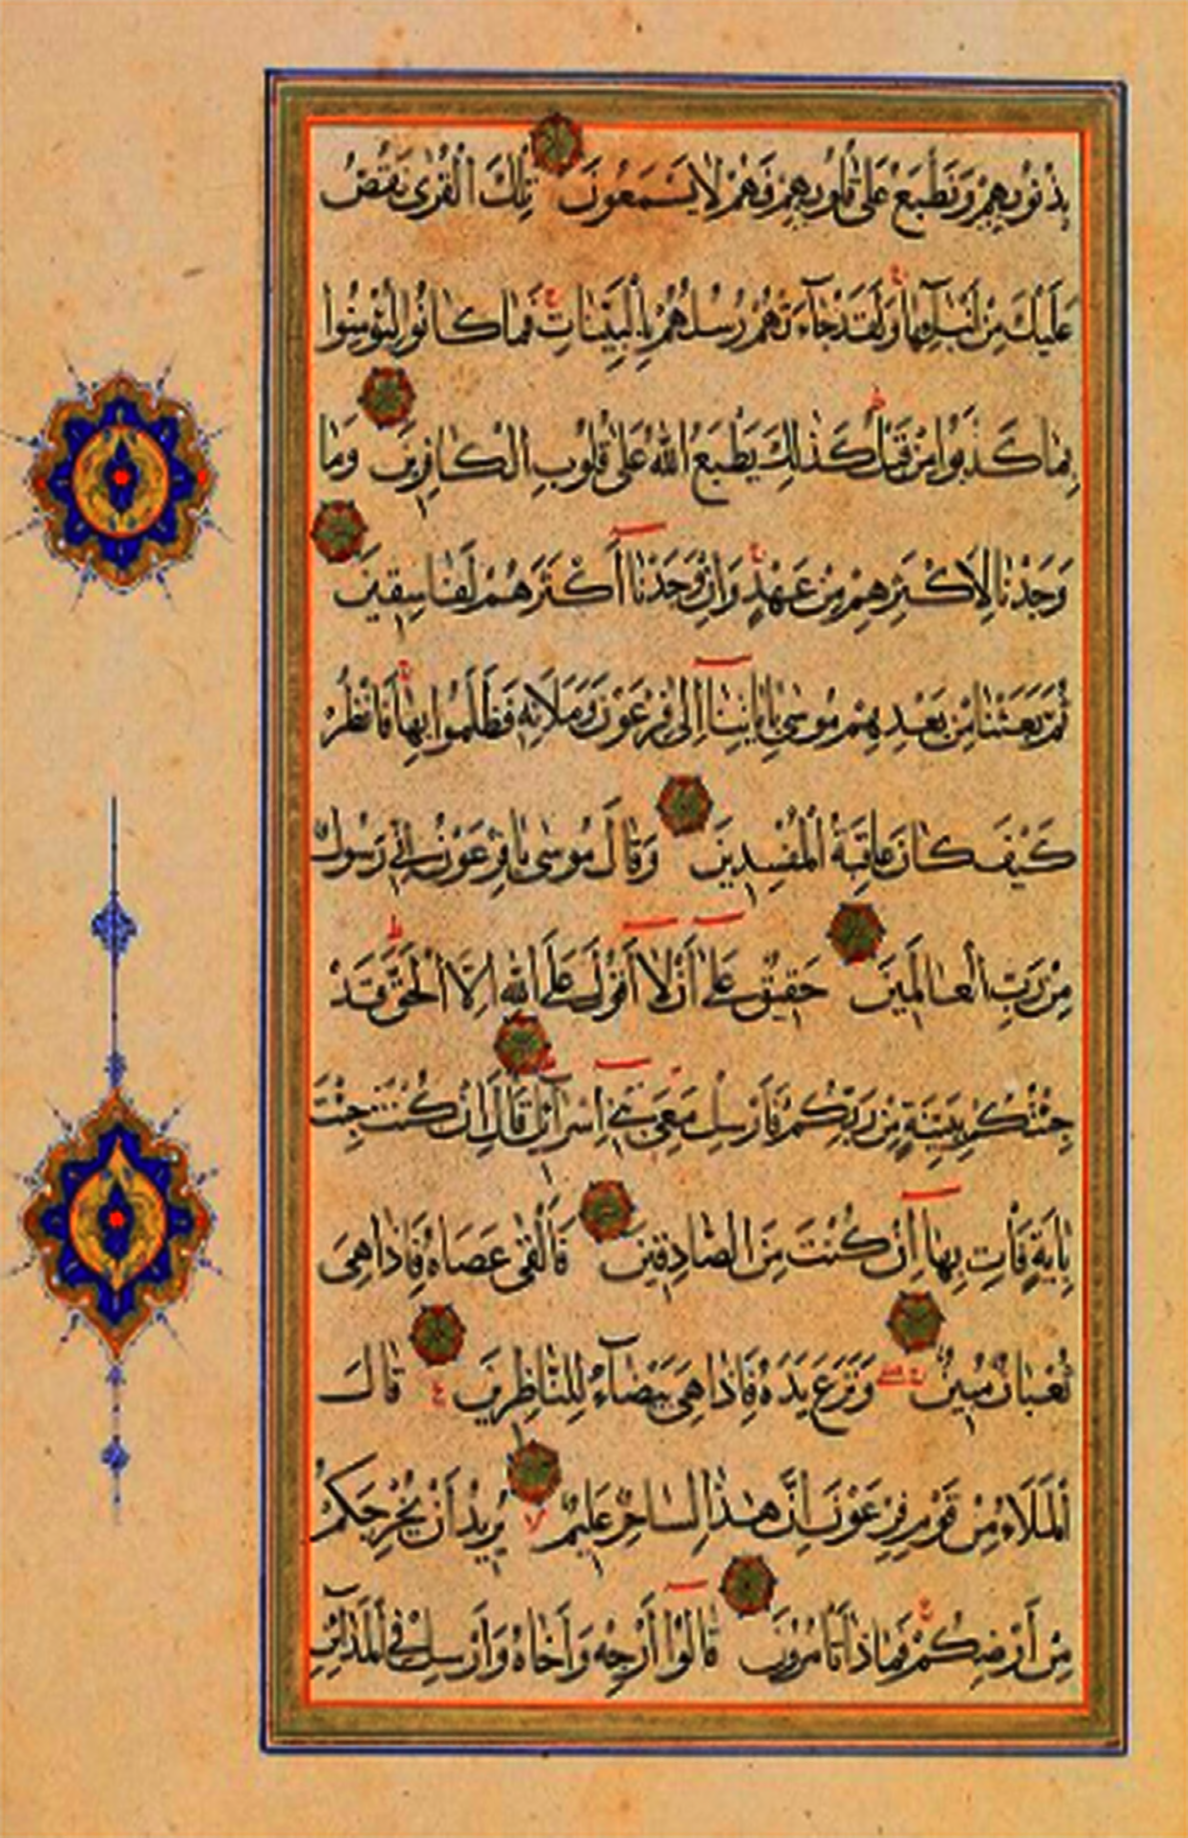 بِذُنُوبِهِمْ وَنَطْبَعُ عَلٰى قُلُوبِهِمْ فَهُمْ لَا يَسْمَعُونَ تِلْكَ الْقُرٰى نَقُصُّ
عَلَيْكَ مِنْ اَنْبَآئِهَا وَلَقَدْ جَآءَتْهُمْ رُسُلُهُمْ بِالْبَيِّنَاتِ فَمَا كَانُوا لِيُؤْمِنُوا
بِمَا كَذَّبُوا مِنْ قَبْلُ كَذٰلِكَ يَطْبَعُ اللّٰهُ عَلٰى قُلُوبِ الْكَافِرِينَ وَمَا
وَجَدْنَا لِاَكْثَرِهِمْ مِنْ عَهْدٍ وَاِنْ وَجَدْنَآ اَكْثَرَهُمْ لَفَاسِقِينَ
ثُمَّ بَعَثْنَا مِنْ بَعْدِهِمْ مُوسٰى بِاٰيَاتِنَآ اِلٰى فِرْعَوْنَ وَمَلَائِهِ فَظَلَمُوا بِهَا فَانْظُرْ
كَيْفَ كَانَ عَاقِبَةُ الْمُفْسِدِينَ وَقَالَ مُوسٰى يَا فِرْعَوْنُ اِنِّي رَسُولٌ
مِنْ رَبِّ الْعَالَمِينَ حَقِيقٌ عَلٰٓى اَنْ لَآ اَقُولَ عَلَى اللّٰهِ اِلَّا الْحَقَّ قَدْ
جِئْتُكُمْ بِبَيِّنَةٍ مِنْ رَبِّكُمْ فَاَرْسِلْ مَعِيَ بَنِيٓ اِسْرَآئِلَ قَالَ اِنْ كُنْتَ جِئْتَ
بِاٰيَةٍ فَأْتِ بِهَآ اِنْ كُنْتَ مِنَ الصَّادِقِينَ فَاَلْقٰى عَصَاهُ فَاِذَا هِيَ
ثُعْبَانٌ مُبِينٌ وَنَزَعَ يَدَهُ فَاِذَا هِيَ بَيْضَآءُ لِلنَّاظِرِينَ قَالَ
الْمَلَاءُ مِنْ قَوْمِ فِرْعَوْنَ اِنَّ هٰذَا لَسَاحِرٌ عَلِيمٌ يُرِيدُ اَنْ يُخْرِجَكُمْ
مِنْ اَرْضِكُمْ فَمَاذَا تَأْمُرُونَ قَالُوٓا اَرْجِهْ وَاَخَاهُ وَاَرْسِلْ فِي الْمَدَآئِنِ